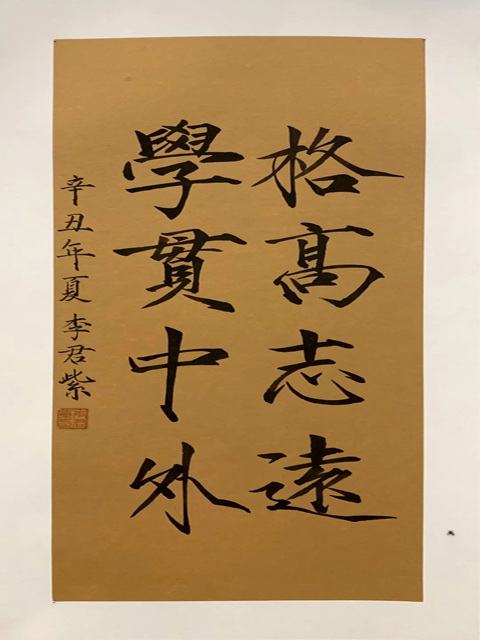 格高志遠
學貫中外
辛丑年夏李君紫